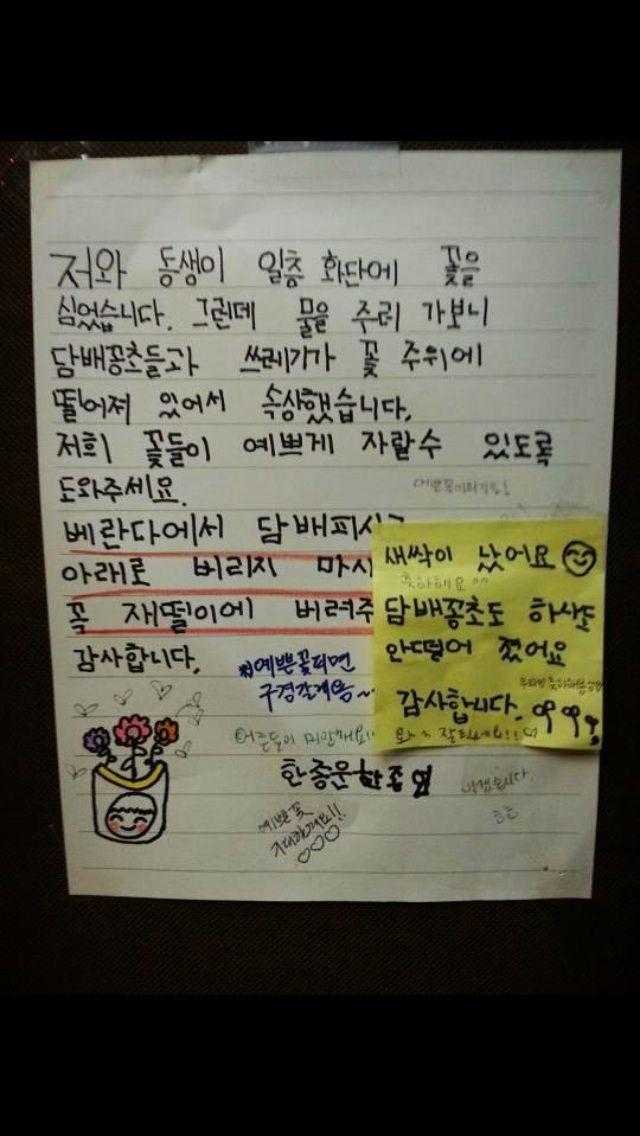 저와 동생이 일층 화단에 꽃을
심었습니다. 그런데 물을 주러 가보니
담배꽁초들과 쓰레기가 꽃 주위에
떨어져 있어서 속상했습니다.
저희 꽃들이 예쁘게 자랄수 있도록
도와주세요.
베란다에서 담배피시고
아래로 버리지 마시
꼭 재떨이에 버려주
감사합니다.
예쁜꽃피면
구경갈게용~
어른들이 미안해요!!
한종운
예쁜 꽃
기대할게요!!
새싹이 났어요
축하해요 ^^
담배꽁초도 하나도
안떨어 졌어요
감사합니다.